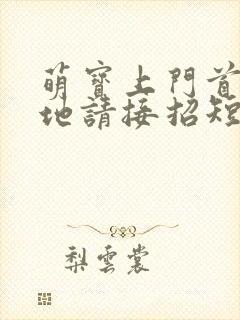 萌寶上門首
地請接招短
梨雲裳